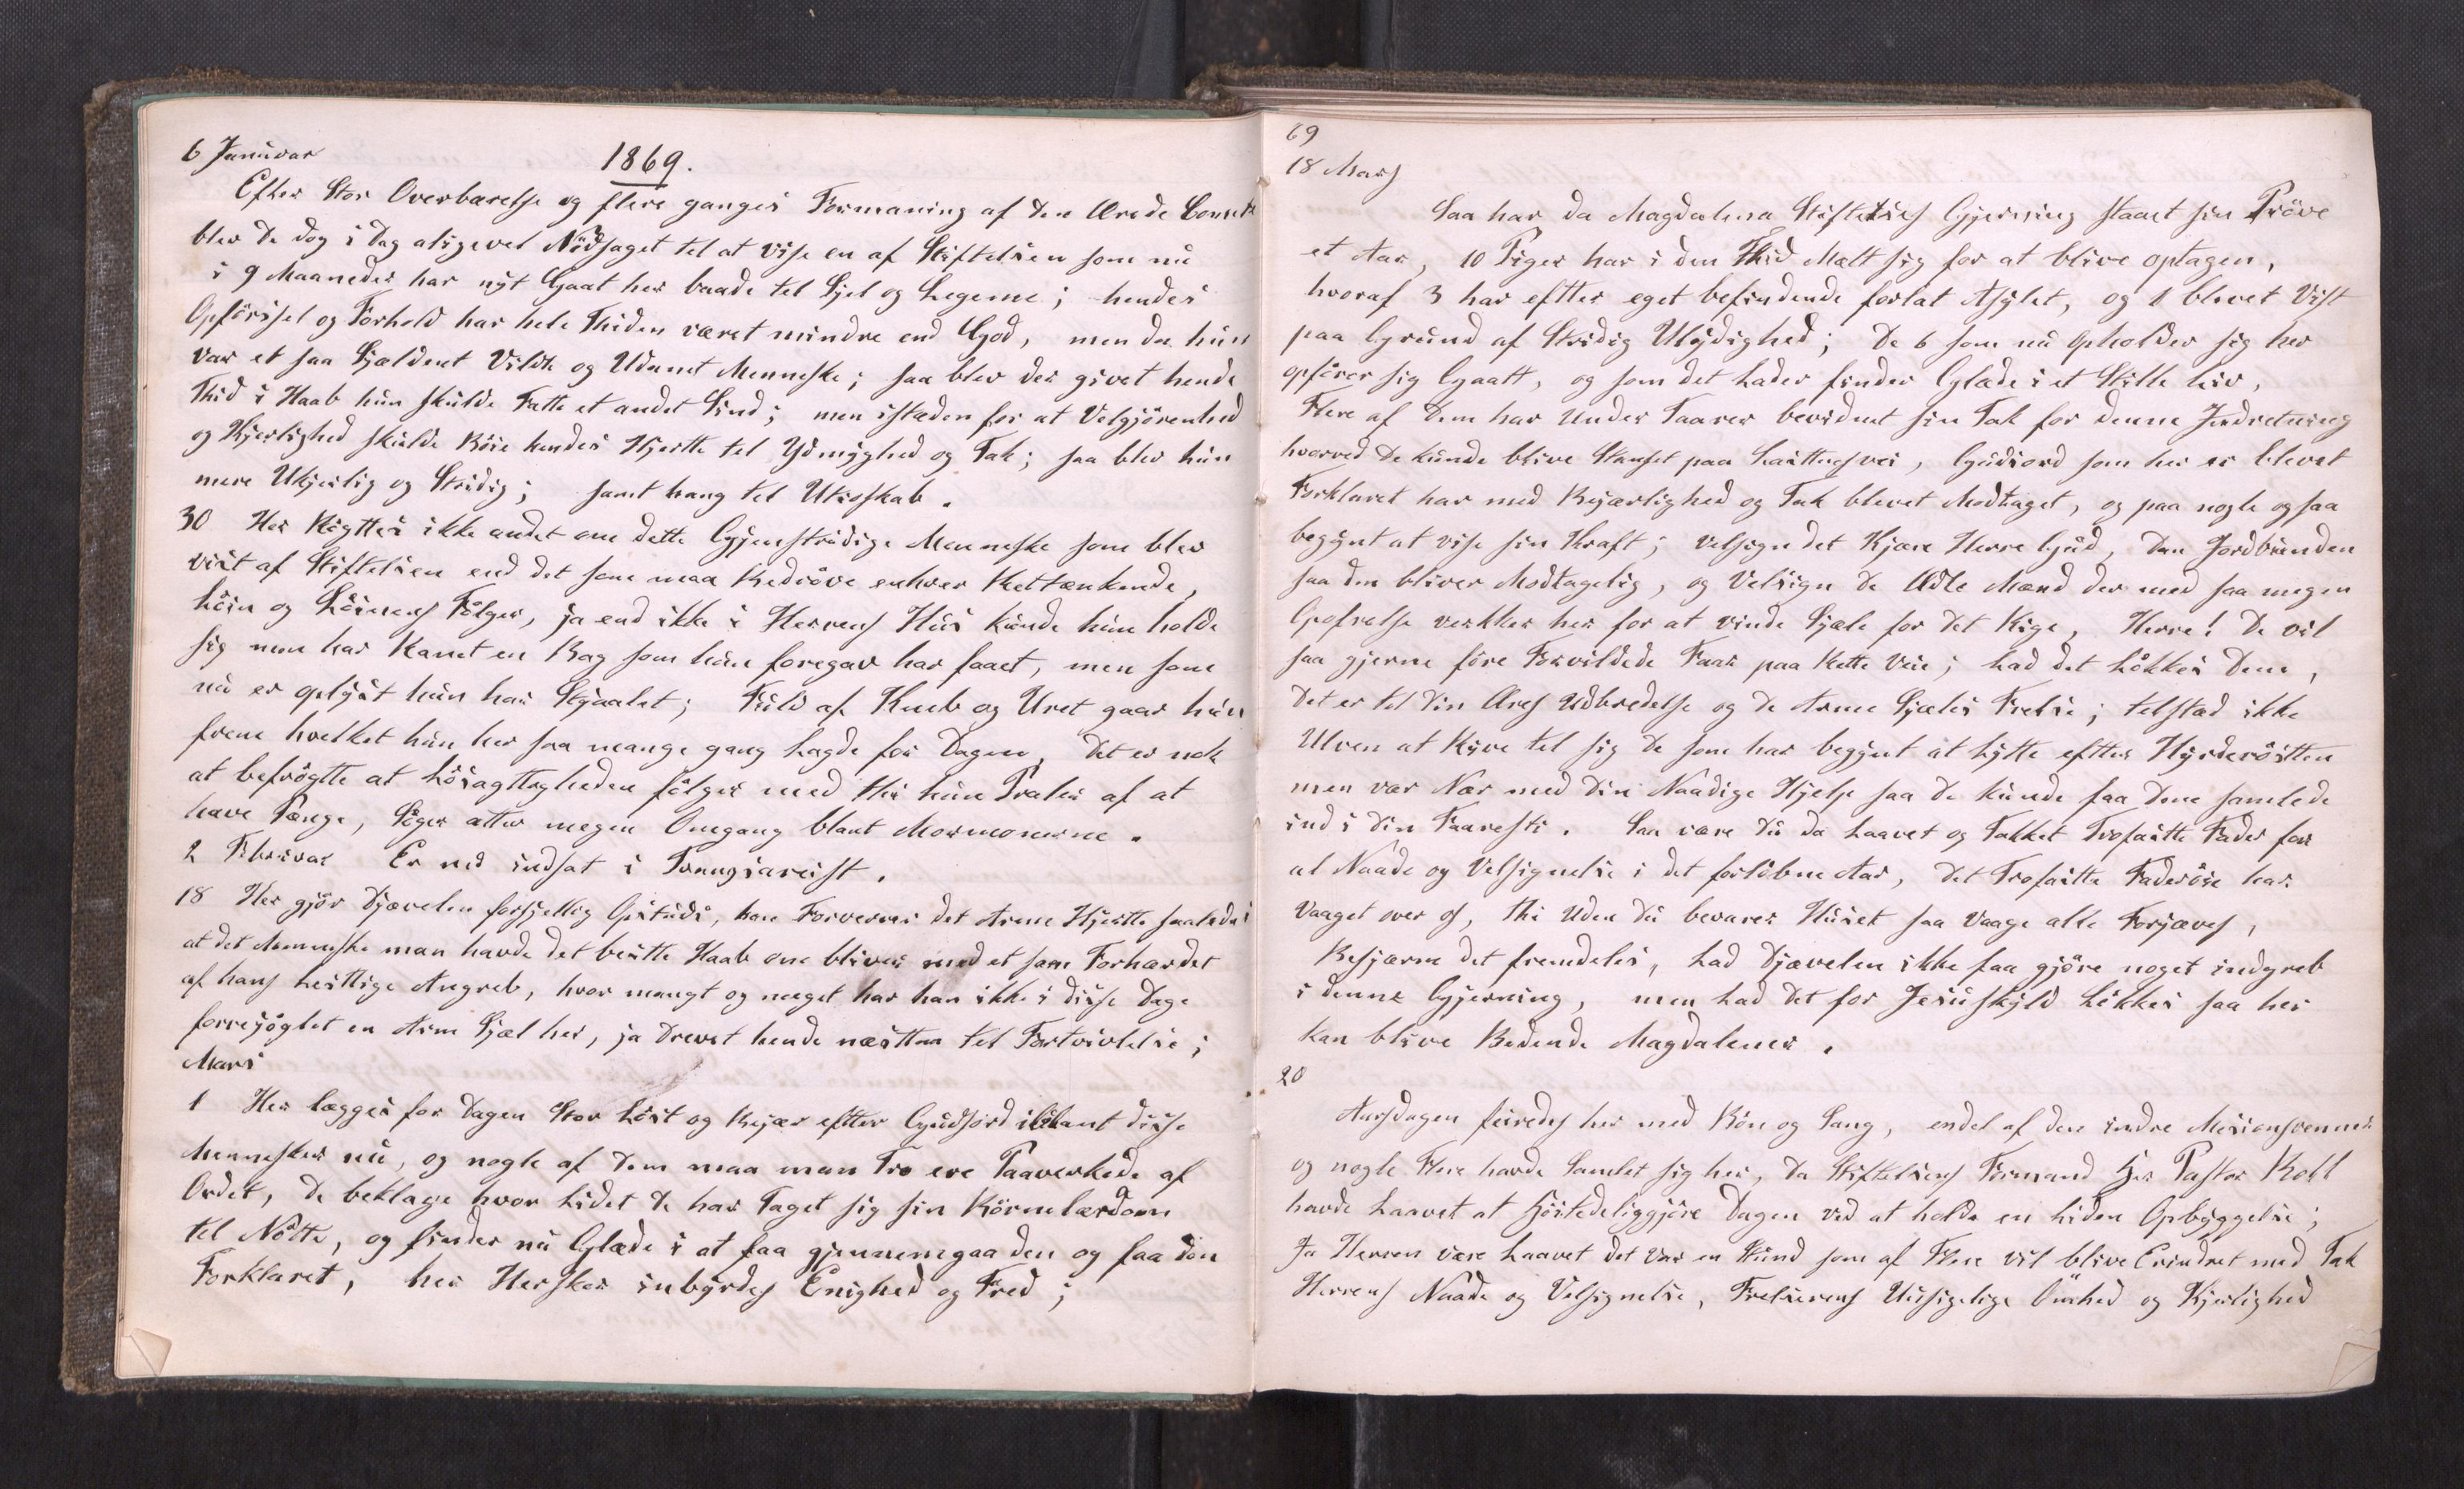 6 Januvar
1869.
Efter Stor Overbærelse og flere ganges Formaning af den Ærede Comite
blev de dog i Dag aligevel Nödsaget tel at vise en af Stiftelsen som nu
i 9 Maaneder har nyt Gaat her baade tel Sjel og Legeme; hendes
Opförsel og Forhold har hele Thiden været mindre end God, men da hun
var et saa Sjældent Vildt og Udanet Menneske; saa blev der givet hende
Thid i Haab hun skulde Fatte et andet Sind; men isteden for at Velgjörenhed
og Kjerlighed skulde Röre hendes Hjertte tel Ydmyghed og Tak; saa blev hun
mere Ukjerlig og Stridig; samt hang tel Utroskab.
30 Her Rögttes ikke andet om dette Gjenstridige Menneske som blev
vist af Stiftelsen end det som maa Bedröve enhver Rettænkende,
Lögn og Lögnens Fölger, ja end ikke i Herrens Hus kunde hun holde
sig men har Ranet en Bog som hun foregav har faaet, men som
nu er oplyst hun har Stjaalet; Fuld af Kneb og Uret gaar hun
frem hvelket hun her saa mange gang Lagde for Dagen, det er nok
at befrögtte at Lösagttigheden fölger med thi hun Praler af at
have Pænge, Söger atter megen Omgang blant Mormonerne.
2 Februar Er ned indsat i Tvangsarest.
18 Her gjör Djævelen forsjellig Opstuds, han Forverrer det Arme Hjertte saaledes
at det Menneske man havde det bestte Haab om bliver med et som Forhærdet
af hans Lesttige Angreb, hvor mangt og meget har han ikke i disse Dage
forresöglet en Arm Sjæl her, ja Drevet hende næstten tel Fortvivlelse;
Mars
1 Her lægges for Dagen Stor Löst og Begjær eftter Gudsord iblant disse
Mennesker nu, og nogle af dem maa man Tro ere Paavirkede af
Ordet, de beklage hvor Lidet de har Taget sig sin Börnelærdom
tel Nötte, og finder nu Glæde i at faa gjennemgaa den og faa den
Forklaret, her Hersker inbyrdes Enighed og Fred;
69
18 Mars
Saa har da Magdalena Stiftelses Gjerning staaet sin Pröve
et Aar, 10 Piger har i den Thid Mælt sig for at blive optagen,
hvoraf 3 har eftter eget befindende forlat Asylet, og 1 blevet Vist
paa Grund af Stridig Ulydighed; De 6 som nu Opholder sig her
opförer sig Gaatt, og som det Lader finder Glæde i et Stille Liv,
Flere af dem har Under Taarer bevidnet sin Tak for denne Indretning
hvorved de kunde blive Stanset paa Lasttens vei, Guds ord som her er blevet
Forklaret har med Begjærlighed og Tak blevet Modtaget, og paa nogle ogsaa
begynt at vise sin Kraft; velsign det Kjære Herre Gud, Dan Jordbunden
saa den bliver Modtagelig, og Velsign de Ædle Mænd der med saa megen
Opofrelse verkker her for at vinde Sjæle for det Rige, Herre! De vil
saa gjerne före Forvildede Faar paa Rette Veie; Lad det Lökkes dem,
det er tel din Æres Udbredelse og de Arme Sjæles Frelse; telstæd ikke
Ulven at Rive tel sig de som har begynt at Lytte eftter Hyrderöstten
men vær Nær med Din Naadige Hjelp saa de kunde faa dem samlede
ind i din Faaresti. Saa være du da Laavet og Takket Trofastte Fader for
al Naade og Velsignelse i det forlöbne Aar, det Trofastte Faderöie har
Vaaget over os, thi Uden du bevarer Huset saa Vaage alle Forjæves,
Besjærm det fremdeles, Lad Djævelen ikke faa gjöre noget indgreb
i denne Gjerning, men Lad det for Jesu skyld Lökkes saa her
kan blive Bedende Magdalener.
20
Aarsdagen feiredes her med Bön og Sang, endel af den indre Misionsvenner
og nogle Flere havde Samlet sig her, da Stiftelsens Formand Hr Pastor
havde Laavet at Höitideliggjöre Dagen ved at holde en Liden Opbyggelse;
Ja Herren være Laavet det var en Stund som af Flere vil blive Erindret med Tak
Herrens Naade og Velsignelse, Frelserens Uusigelige Ömhed og Kjerlighed